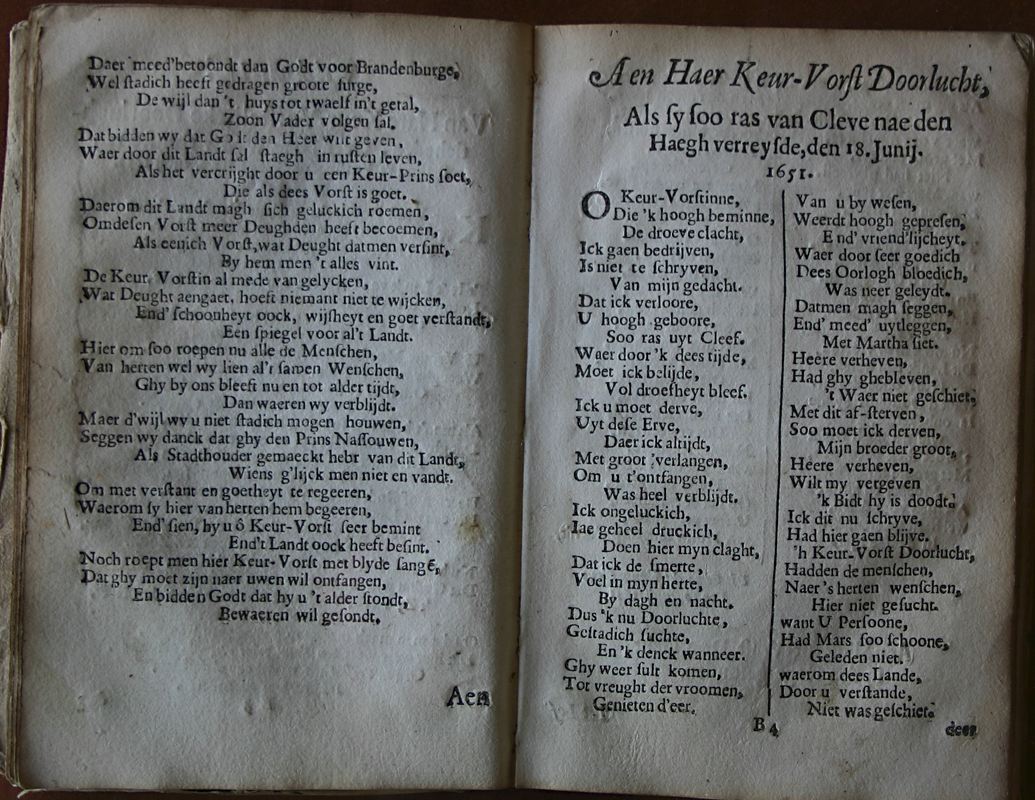 Daer meed' betoondt dan Godt voor Brandenburge,
Wel stadich heeft gedragen groote surge,
De wijl dan 't huys tot twaelf in't getal,
Zoon Vader volgen sal.
Dat bidden wy dat Godt den Heer wil geven,
Waer door dit Landt sal staegh in rusten leven,
Als het vercrijght door u een Keur-Prins soet,
Die als dees Vorst is goet.
Daerom dit Landt magh sich geluckich roemen,
Om desen Vorst meer Deughden heeft becoemen,
Als eenich Vorst, wat Deught datmen versint,
By hem men 't alles vint.
De Keur Vorstin al mede van gelycken,
Wat Deught aengaet, hoeft niemant niet te wijcken,
End' schoonheyt oock, wijsheyt en goet verstandt,
Een spiegel voor al't Landt.
Hier om soo roepen nu alle de Menschen,
Van herten wel wy lien al't samen Wenschen,
Ghy by ons bleeft nu en tot alder tijdt,
Dan waeren wy verblijdt.
Maer d'wijl wy u niet stadich mogen houwen,
Seggen wy danck dat ghy den Prins Nassouwen,
Als Stadthouder gemaeckt hebt van dit Landt,
Wiens g'lijck men niet en vandt.
Om met verstant en goetheyt te regeeren,
Waerom sy hier van herten hem begeeren,
End' sien, hy u ô Keur-Vorst seer bemint
End't Landt oock heeft besint.
Noch roept men hier Keur-Vorst met blyde sange,
Dat ghy moet zijn naer uwen wil ontfangen,
En bidden Godt dat hy u 't alder stondt,
Bewaeren wil gesondt.
Aen
Aen Haer Keur-Vorst Doorlucht,
Als sy soo ras van Cleve nae den
Haegh verreysde, den 18. Junij.
1651.
O Keur-Vorstinne,
Die 'k hoogh beminne,
De droeve clacht,
Ick gaen bedrijven,
Is niet te schryven,
Van mijn gedacht.
Dat ick verloore,
U hoogh geboore,
Soo ras uyt Cleef.
Waer door 'k dees tijde,
Moet ick belijde,
Vol droefheyt bleef.
Ick u moet derve,
Uyt dese Erve,
Daer ick altijdt,
Met groot verlangen,
Om u t'ontfangen,
Was heel verblijdt.
Ick ongeluckich,
Iae geheel druckich,
Doen hier myn claght,
Dat ick de smerte,
Voel in myn herte,
By dagh en nacht.
Dus 'k nu Doorluchte,
Gestadich suchte,
En 'k denck wanneer.
Ghy weer sult komen,
Tot vreught der vroomen,
Genieten d'eer.
Van u by wesen,
Weerdt hoogh gepresen,
End' vriend'lijcheyt.
Waer door seer goedich
Dees Oorlogh bloedich,
Was neer geleydt.
Datmen magh seggen,
End' meed' uytleggen,
Met Martha siet.
Heere verheven,
Had ghy ghebleven,
't Waer niet geschiet,
Met dit af-sterven,
Soo moet ick derven,
Mijn broeder groot,
Heere verheven,
Wilt my vergeven
'k Bidt hy is doodt.
Ick dit nu schryve,
Had hier gaen blijve.
'h Keur-Vorst Doorlucht,
Hadden de menschen,
Naer 's herten wenschen,
Hier niet gesucht.
want U Persoone,
Had Mars soo schoone,
Geleden niet.
waerom dees Lande,
Door u verstande,
Niet was geschiet.
B 4
deer